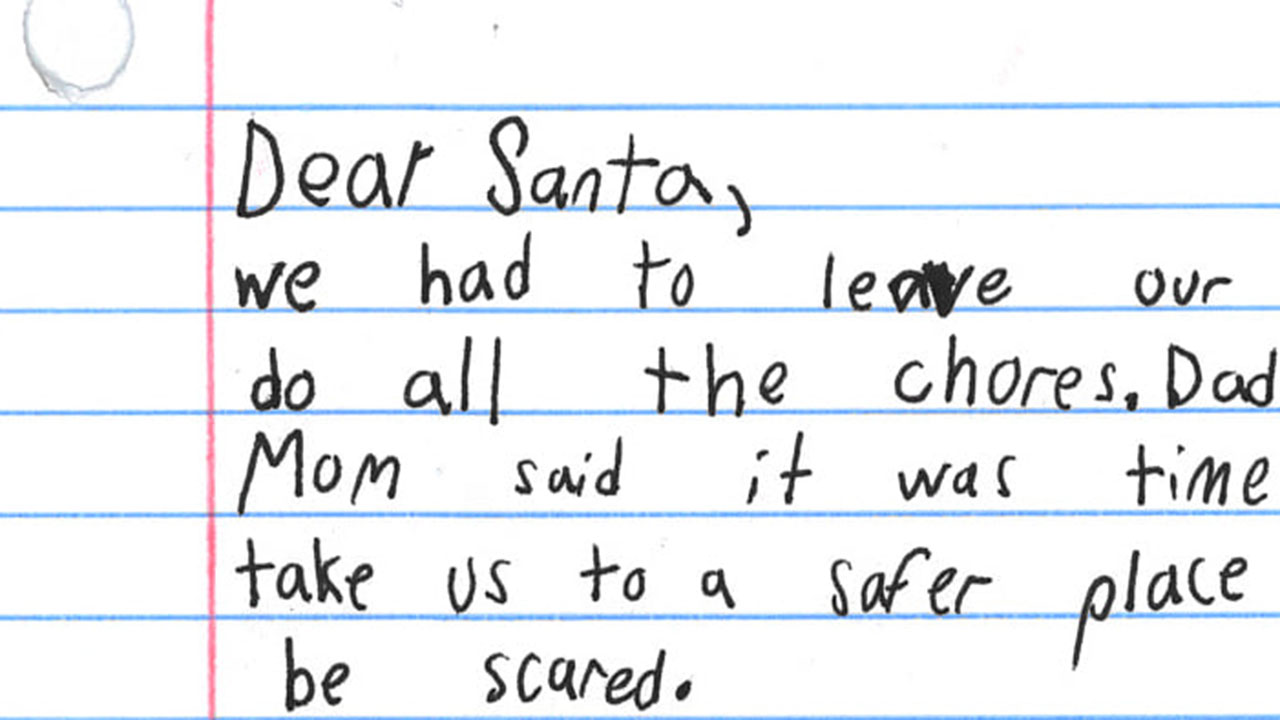 Dear Santa,
we had to leave our
do all the chores. Dad
Mom said it was time
take us to a safer place
be scared.